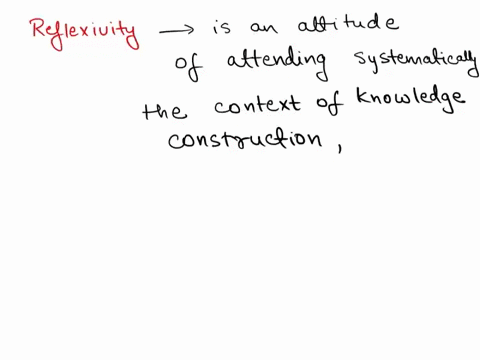 Reflexivity → is an attitude
of attending systematically
the context of knowledge
construction,